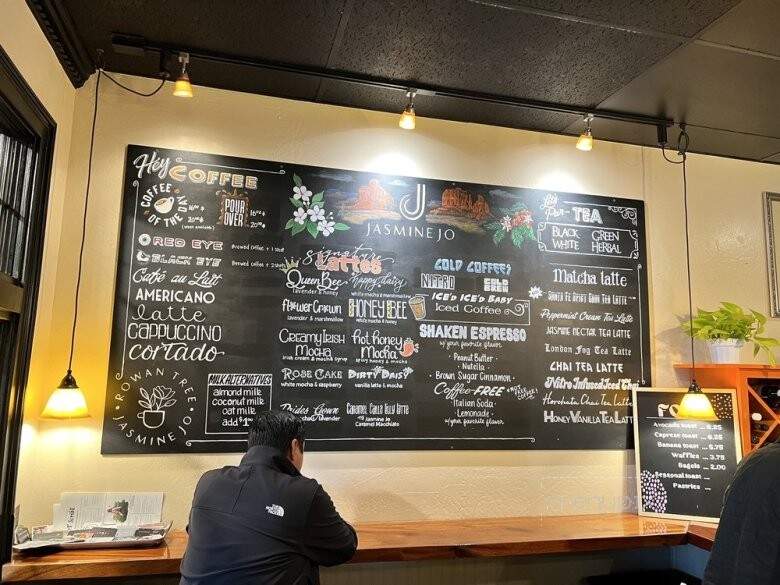 Hey
COFFEE
COFFEE
OF THE
DAY
16oz
20oz
POUR
OVER
16oz
20oz
RED EYE Brewed Coffee + 1 Shot
BLACK EYE Brewed Coffee + 2 Shots
Café au Lait
AMERICANO
latte
CAPPUCCINO
cortado
ROWAN TREE
JASMINE JO
MILK ALTERNATIVES
almond milk
coconut milk
oat milk
add $1
J
JASMINE JO
signature
Lattes
Queen Bee
lavender & honey
Flower Crown
lavender & marshmallow
Creamy Irish
Mocha
irish cream & mocha syrup
ROSE CAKE
white mocha & raspberry
happy daisy
white mocha & marshmallow
HONEY BEE
white mocha & honey
Hot Honey
Mocha
spicy honey & mocha
DIRTY DAISY
vanilla latte & mocha
CARAMEL
LATTE
Jasmine Jo
Caramel Macchiato
COLD COFFEES
NITRO
COLD
BREW
ICE'D ICE'D BABY
Iced Coffee
SHAKEN ESPRESSO
w/your favorite flavor
Peanut Butter
Nutella
Brown Sugar Cinnamon
Coffee-FREE
Italian Soda
Lemonade
w/your favorite flavor
TEA
BLACK GREEN
WHITE HERBAL
Matcha latte
TEA LATTE
Peppermint Cream Tea Latte
JASMINE NECTAR TEA LATTE
London Fog Tea Latte
CHAI TEA LATTE
Nitro Infused Iced Chai
Horchata Chai Tea Latte
HONEY VANILLA TEA LATTE
Avocado toast ... 6.25
Caprese toast ... 6.25
Banana toast ... 5.75
Waffles ... 3.75
Bagels ... 2.00
Seasonal toast
Pastries
THE
NORTH
FACE